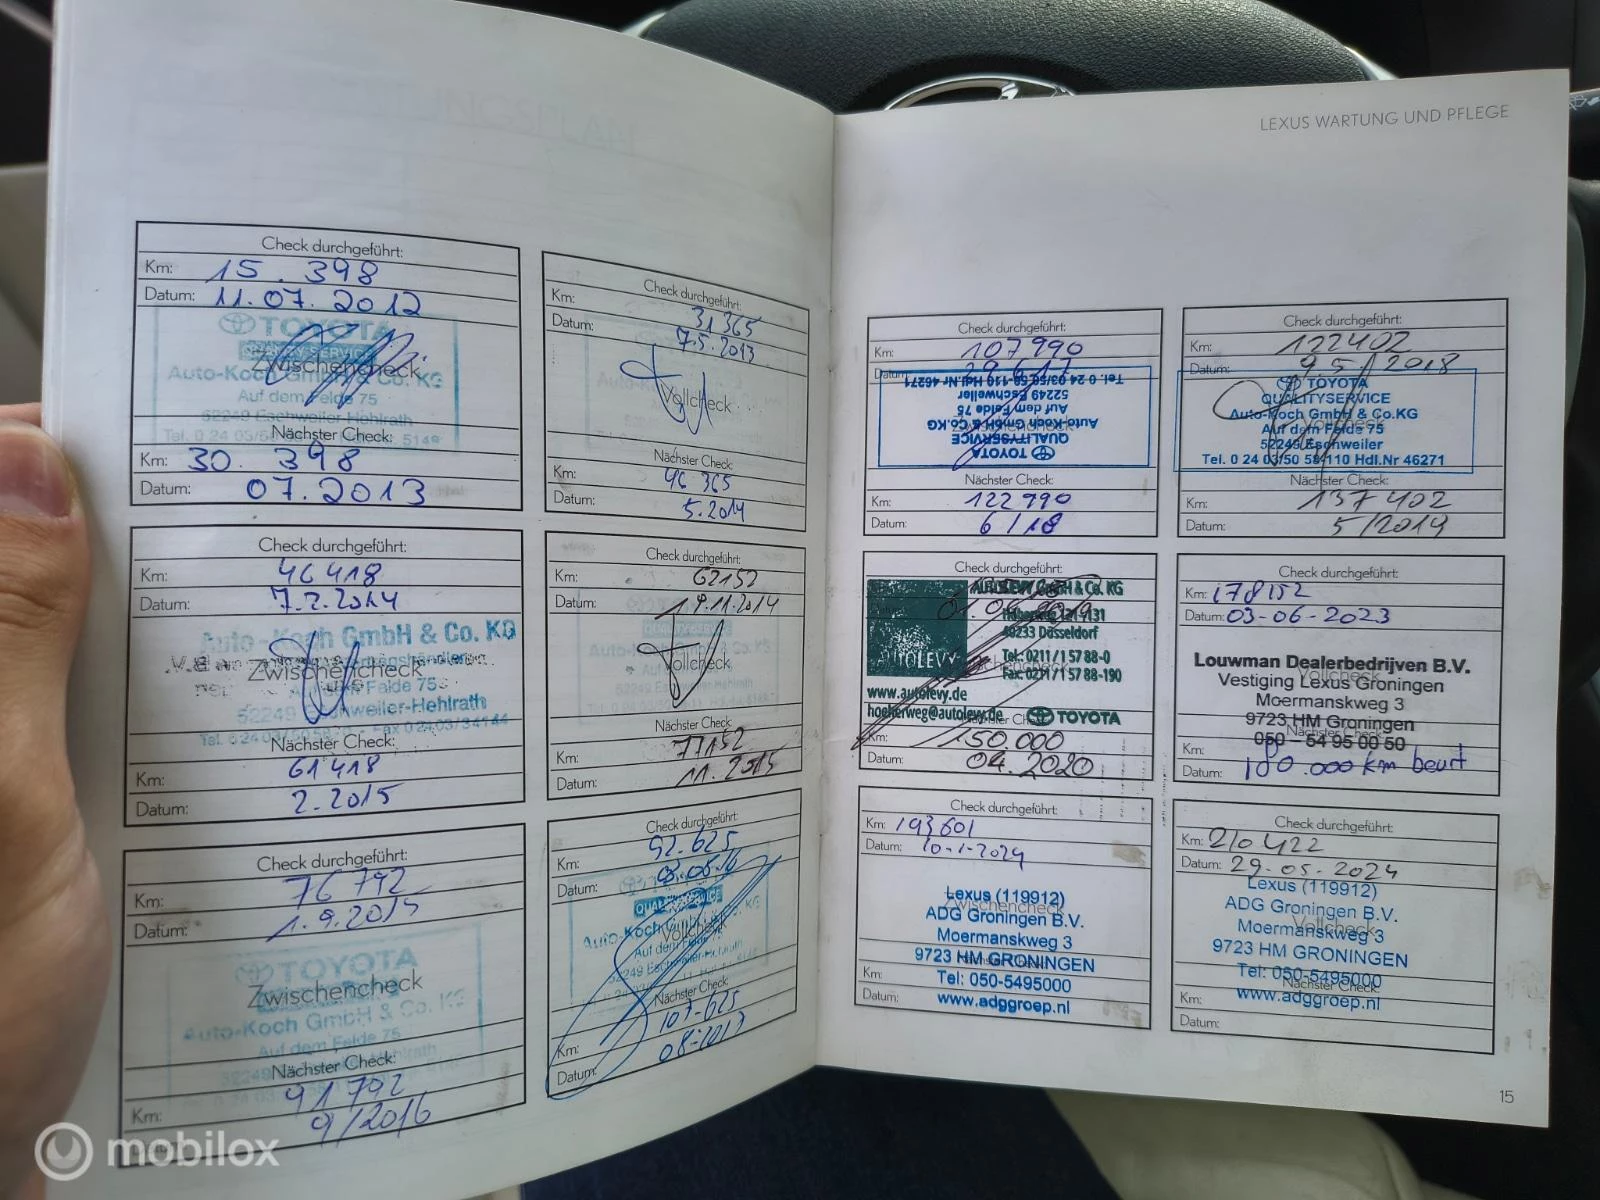 Check durchgeführt:
Km: 15.398
Datum: 11.07.2012
TOYOTA
QUALITY SERVICE
Zwischencheck
Auto-Koch GmbH & Co. KG
Auf dem Felde 75
52249 Eschweiler-Hehlrath
Nächster Check:
Km: 30.398
Datum: 07.2013
Check durchgeführt:
Km: 31365
Datum: 7.5.2013
Vollcheck
Nächster Check:
Km: 46365
Datum: 5.2014
Check durchgeführt:
Km: 46418
Datum: 7.2.2014
Auto-Koch GmbH & Co. KG
Zwischencheck
Felde 75
52249 Eschweiler-Hehlrath
Nächster Check:
Km: 61418
Datum: 2.2015
Check durchgeführt:
Km: 62152
Datum: 19.11.2014
Vollcheck
Nächster Check:
Km: 77152
Datum: 11.2015
Check durchgeführt:
Km: 76792
Datum: 1.9.2015
TOYOTA
Zwischencheck
Auto-Koch GmbH & Co. KG
Auf dem Felde 75
Nächster Check:
Km: 91792
9/2016
Check durchgeführt:
Km: 92.625
Datum:
Vollcheck
Auto-Koch
Nächster Check:
Km: 107-625
Datum: 08-2017
LEXUS WARTUNG UND PFLEGE
Check durchgeführt:
Km: 107990
Datum:
TOYOTA
QUALITYSERVICE
Auto-Koch GmbH & Co.KG
Auf dem Felde 75
52249 Eschweiler
Tel. 0 24 03/50 58-110 Hdl.Nr 46271
Nächster Check:
Km: 122990
Datum: 6/18
Check durchgeführt:
Km: 122402
Datum: 9.5/2018
TOYOTA
QUALITYSERVICE
Auto-Koch GmbH & Co.KG
Auf dem Felde 75
52249 Eschweiler
Tel. 0 24 03/50 58-110 Hdl.Nr 46271
Nächster Check:
Km: 137402
Datum: 5/2019
Check durchgeführt:
AUTOLEVY GmbH & Co. KG
40233 Düsseldorf
AUTOLEVY
Tel.: 0211/1 57 88-0
Fax: 0211/1 57 88-190
www.autolevy.de
hoeherweg@autolevy.de
TOYOTA
Km: 150.000
Datum: 04.2020
Check durchgeführt:
Km: 178152
Datum: 03-06-2023
Louwman Dealerbedrijven B.V.
Vestiging Lexus Groningen
Moermanskweg 3
9723 HM Groningen
050 - 54 95 00 50
Km:
Datum: 180.000 km beurt
Check durchgeführt:
Km: 193601
Datum: 10-1-2024
Lexus (119912)
Zwischencheck
ADG Groningen B.V.
Moermanskweg 3
9723 HM GRONINGEN
Tel: 050-5495000
www.adggroep.nl
Km:
Datum:
Check durchgeführt:
Km: 210422
Datum: 29.05.2024
Lexus (119912)
ADG Groningen B.V.
Vollcheck
Moermanskweg 3
9723 HM GRONINGEN
Tel: 050-5495000
Nächster Check:
www.adggroep.nl
Km:
Datum:
15
mobilox